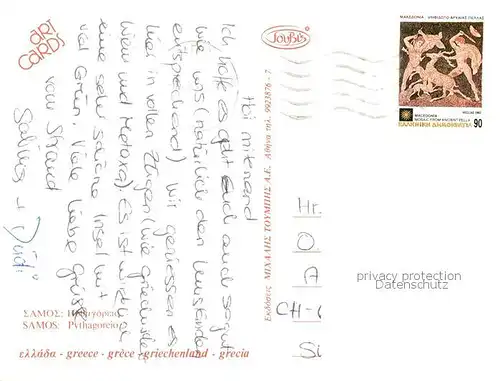 art
cards
Toubis
ΜΑΚΕΔΟΝΙΑ - ΨΗΦΙΔΩΤΟ ΑΡΧΑΙΑΣ ΠΕΛΛΑΣ
MACEDONIA
MOSAIC FROM ANCIENT PELLA
HELLAS 1992
ΕΛΛΗΝΙΚΗ ΔΗΜΟΚΡΑΤΙΑ 90
Hoi mitenand
Ich hoffe es geht Euch auch so gut
wie uns (natürlich den Umständen
entsprechend). Wir geniessen es
hier in vollen Zügen (wie Griechische
Wein und Metaxa) Es ist wirklich
eine sehr schöne Insel mit
viel Grün. Viele liebe Grüsse
vom Strand
Sabine +
Εκδόσεις ΜΙΧΑΛΗΣ ΤΟΥΜΠΗΣ Α.Ε. Αθήνα τηλ. 9923876 - 7
Hr.
O.
A
CH-
Si
privacy protection
Datenschutz
ΣΑΜΟΣ: Πυθαγόρειο
SAMOS: Pythagoreio
ελλάδα - greece - grèce - griechenland - grecia